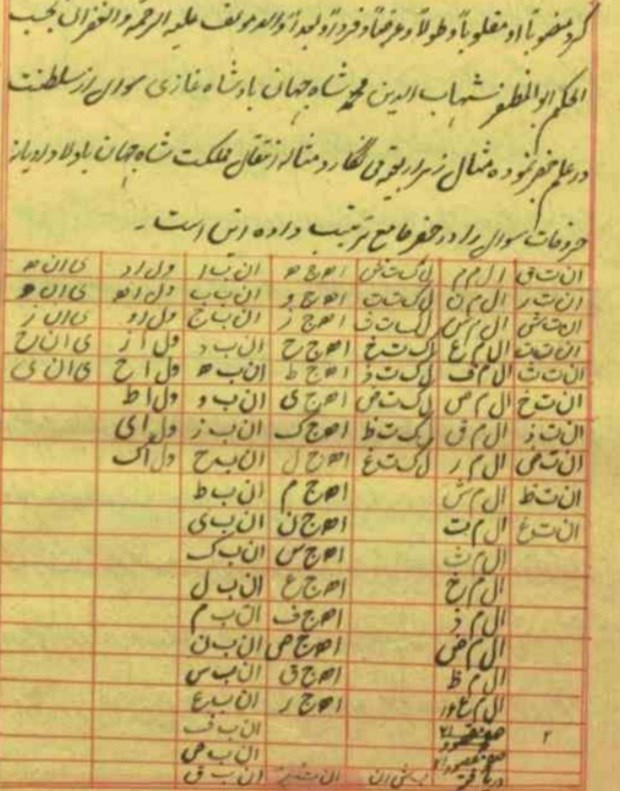 کرد منصوباً او مقلوباً و طولاً و عرضاً و فرداً و لبداً والد مولف علیه الرحمة والغفران بحسب
الحکم ابوالمظفر شهاب الدین محمد شاه جهان بادشاه غازی سوال از سلطنت
در علم جفر نموده مثال زیرا بقومی نگارد مثاله انتقال مملکت شاه جهان باولاد او یا نه
حروفات سوال را در جفر جامع ترتیب داده این است
ان ت ق ال م م ل ک ت ض ا ه ج ه ان ب ا ول اد ی ان ه
ان ت ر ال م ن ل ک ت ت ا ه ج و ان ب ب ول ا ه ی ان و
ان ت ش ال م س ل ک ت ث ا ه ج ز ان ب ج ول ا و ی ان ز
ان ت ت ال م ع ل ک ت خ ا ه ج ح ان ب د ول ا ز ی ان ح
ان ت ث ال م ف ل ک ت ذ ا ه ج ط ان ب ه ول ا ح ی ان ی
ان ت خ ال م ص ل ک ت ض ا ه ج ی ان ب و ول ا ط
ان ت ذ ال م ق ل ک ت ظ ا ه ج ک ان ب ز ول ا ی
ان ت ض ال م ر ل ک ت غ ا ه ج ل ان ب ح ول ا ک
ان ت ظ ال م ش ا ه ج م ان ب ط
ان ت غ ال م ت ا ه ج ن ان ب ی
ال م ث ا ه ج س ان ب ک
ال م خ ا ه ج ع ان ب ل
ال م ذ ا ه ج ف ان ب م
ال م ض ا ه ج ص ان ب ن
ال م ظ ا ه ج ق ان ب س
ال م غ ا ه ج ر ان ب ع
۲ ان ب ف
ان ب ص
ان ب ق